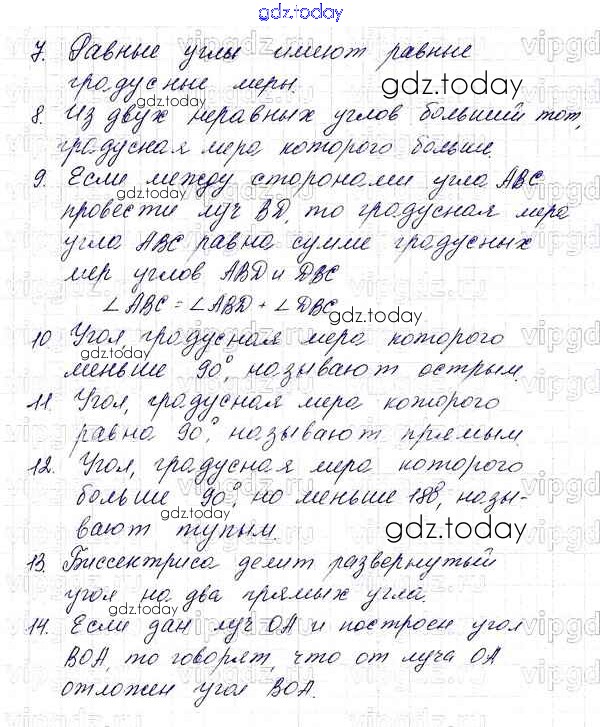 gdz.today
7. Равные углы имеют равные
градусные меры.
gdz.today
gdz.today
8. Из двух неравных углов больший тот,
градусная мера которого больше.
9. Если между сторонами угла ABC
gdz.today
провести луч BD, то градусная мера
угла ABC равна сумме градусных
мер углов ABD и DBC
∠ABC = ∠ABD + ∠DBC
gdz.today
10 Угол градусная мера которого
gdz.today
меньше 90°, называют острым.
11. Угол, градусная мера которого
равна 90°, называют прямым
12. Угол, градусная мера которого
больше 90°, но меньше 180°, назы-
вают тупым.
gdz.today
13. Биссектриса делит развернутый
угол на два прямых угла.
gdz.today
14. Если дан луч OA и построен угол
BOA, то говорят, что от луча OA
отложен угол BOA.